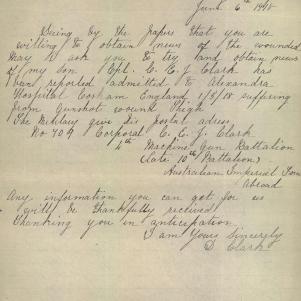 June 6th 1918
Seeing by the papers that you are
willing to obtain news of the wounded
May I ask you to try and obtain news
of my son Cpl. C. E. J. Clark has
been reported admitted to Alexandra
Hospital Cosham England 1/5/18 suffering
from Gunshot wound Thigh
The Military give his postal adress
No 709 Corporal C. E. J. Clark
4th Machine Gun Battalion
(late 10th Battalion)
Australian Imperial Force
Abroad
Any information you can get for us
will be thankfully received
Thanking you in anticipation
I am Yours Sincerely
D Clark